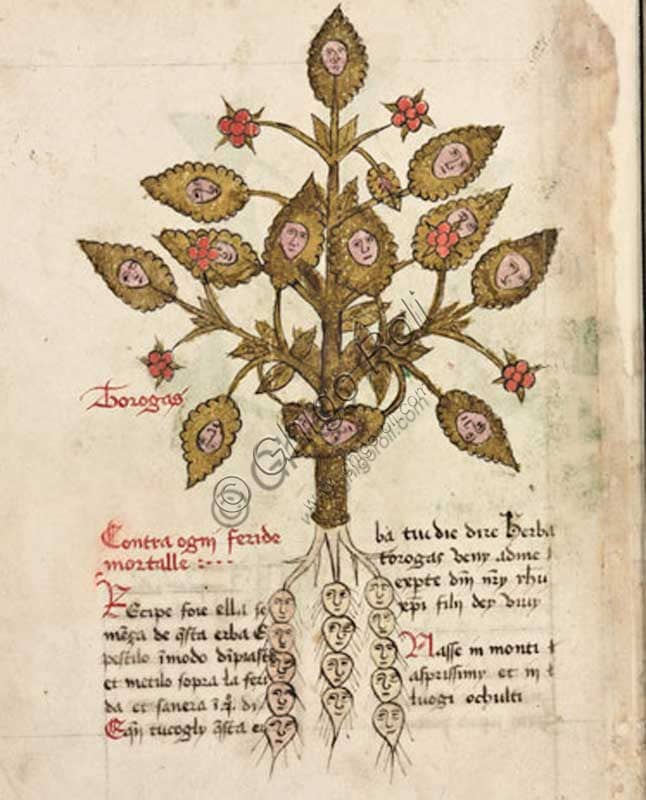 Torogas
Contra ogni feride
mortalle :···
Recipe foie ella se
mēza de q̄sta erba E
pestilo īmodo dīpiastr
et metilo sopra la feri
da et sanera ī q̃ di
E q̄n tu cogly q̄sta er
ba tu die dire Herba
torogas veny ad me
expte dn̄i nr̄y yhu
xp̄i filij dey viuy
Nasse in monti
asprissimy et in
luogi ochulti
© Ghigo Roli
www.ghigoroli.com